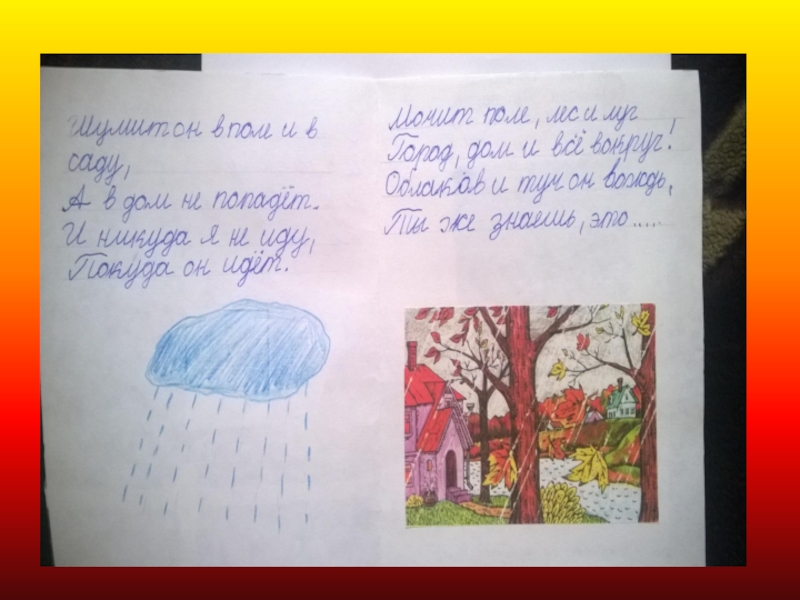 Шумит он в поле и в
саду,
А в дом не попадёт.
И никуда я не иду,
Покуда он идёт.
Мочит поле, лес и луг,
Город, дом и всё вокруг!
Облаков и туч он вождь,
Ты же знаешь, это.....